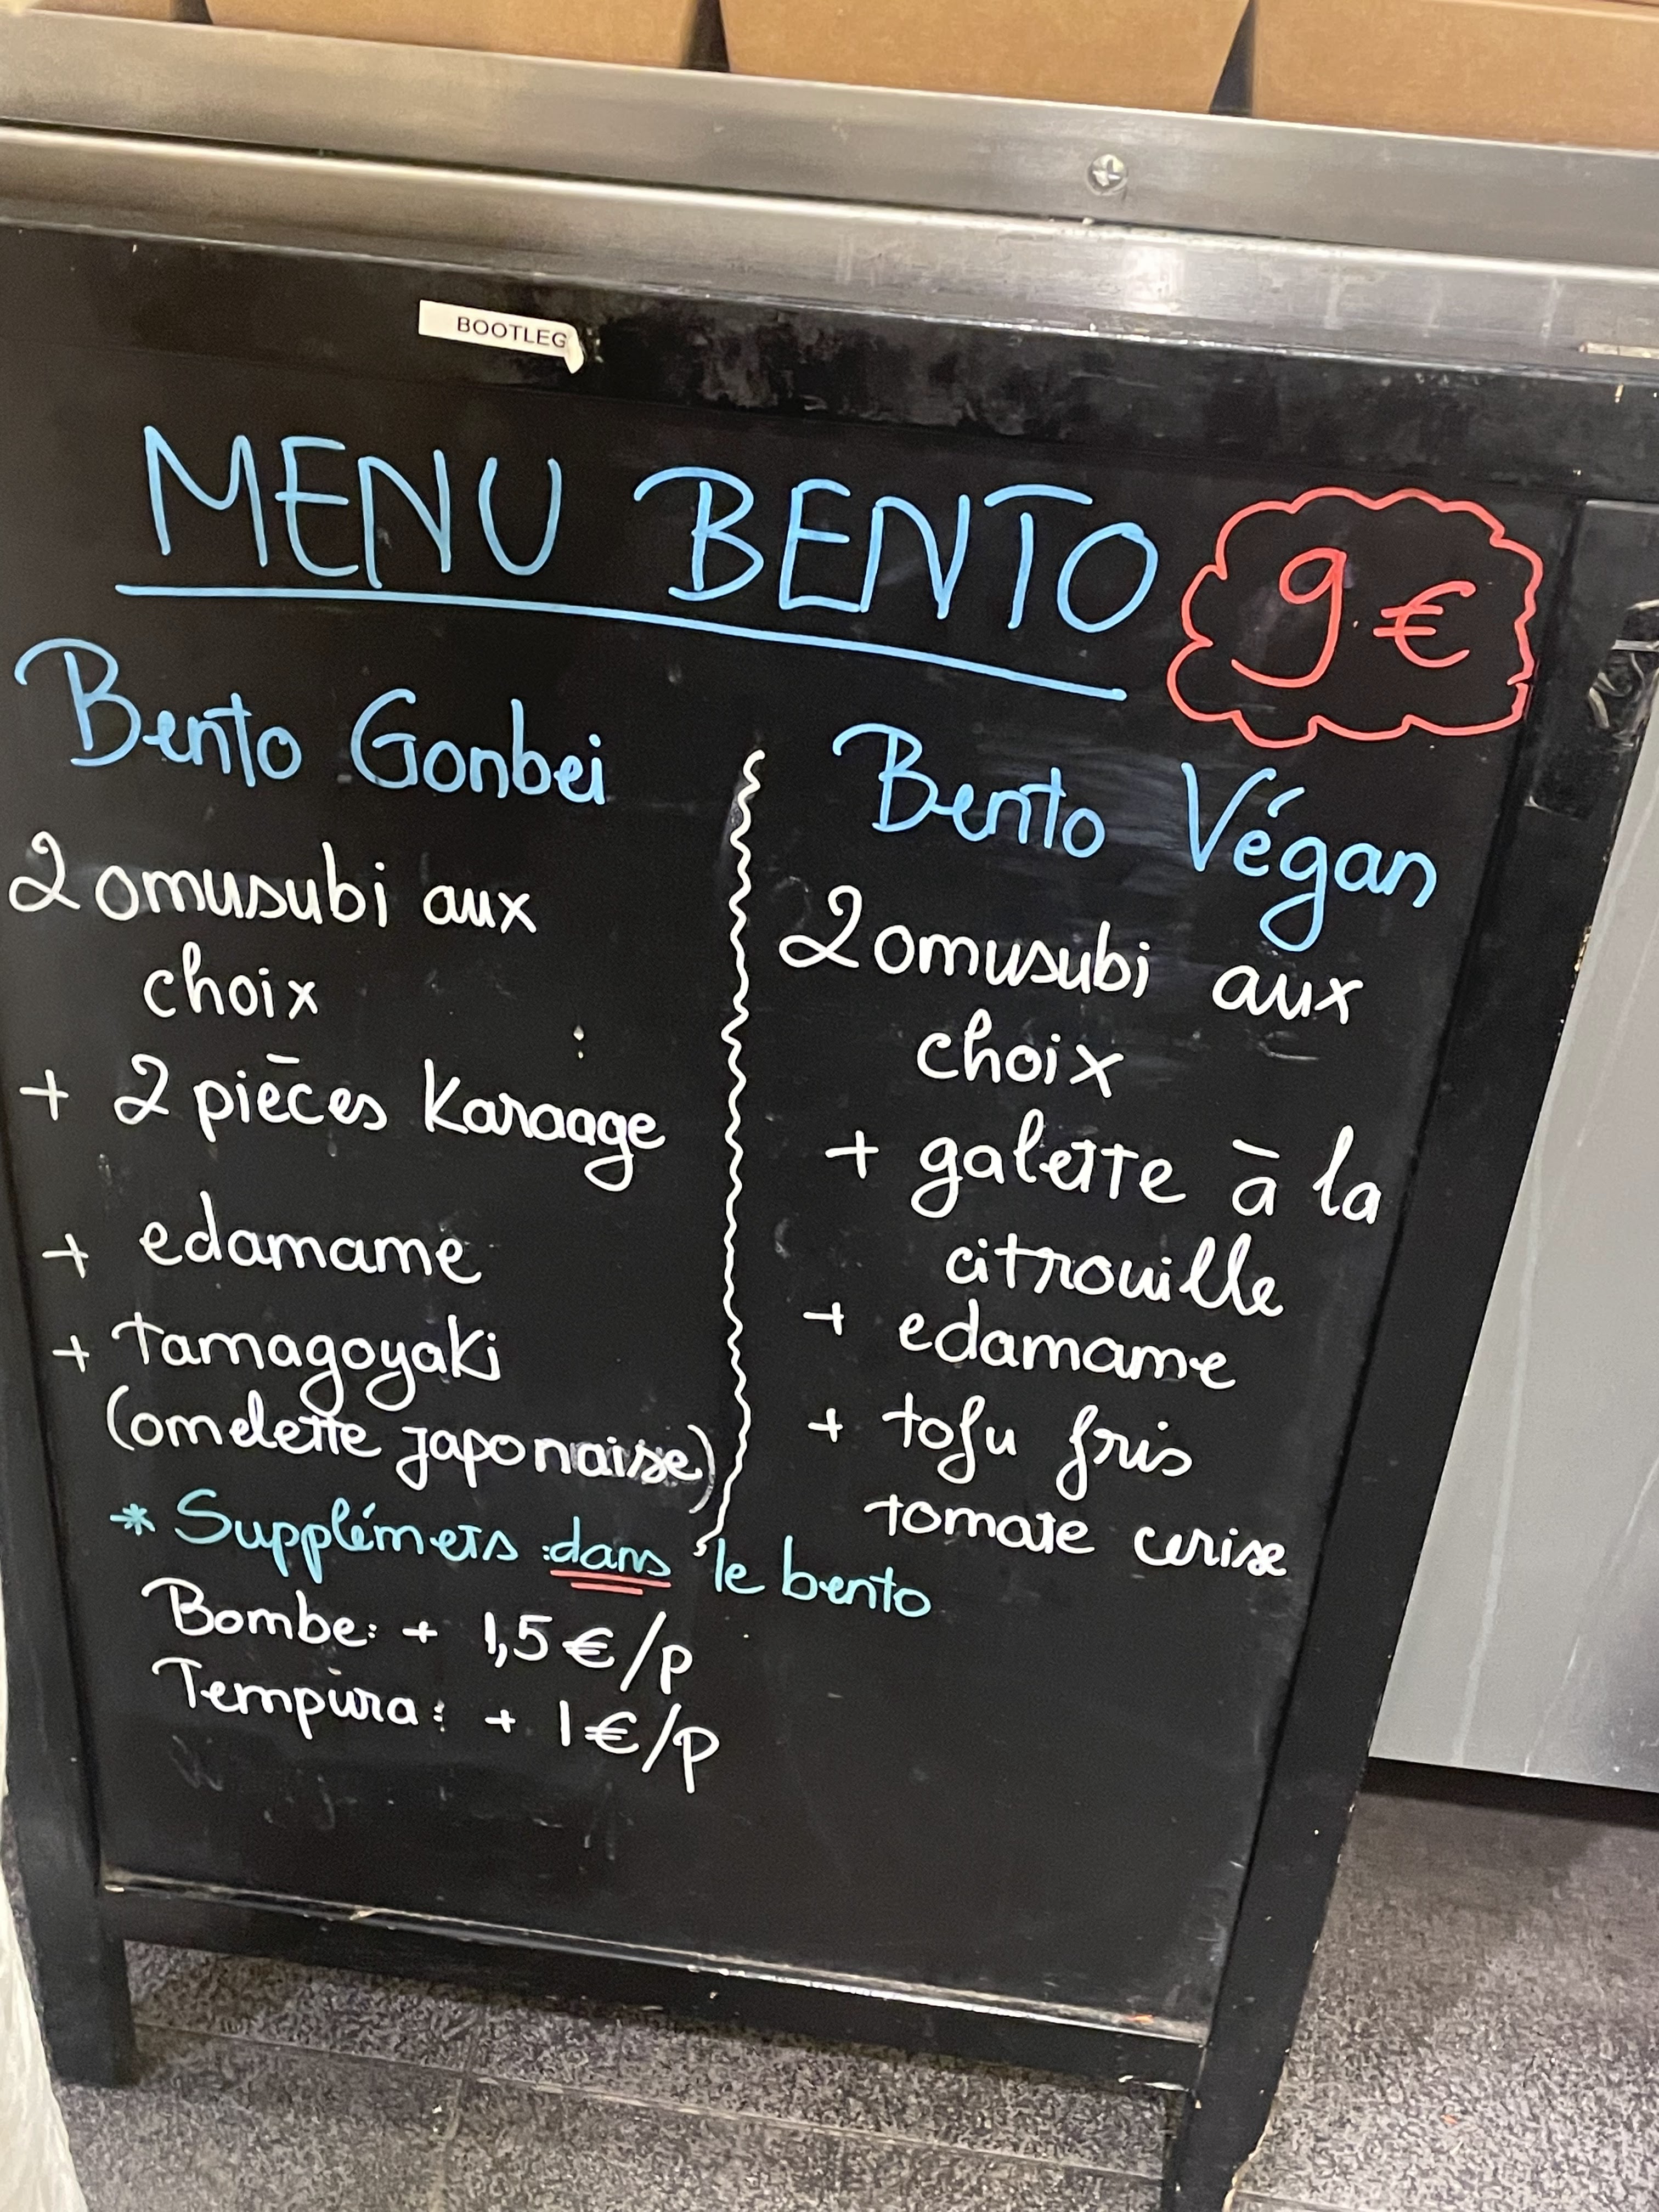 BOOTLEG
MENU BENTO 9€
Bento Gonbei
2 omusubi aux
choix
+ 2 pièces Karaage
+ edamame
+ tamagoyaki
(omelette japonaise)
Bento Végan
2 omusubi aux
choix
+ galette à la
citrouille
+ edamame
+ tofu fris
tomate cerise
* Supplémets dans le bento
Bombe: + 1,5€/p
Tempura: + 1€/p